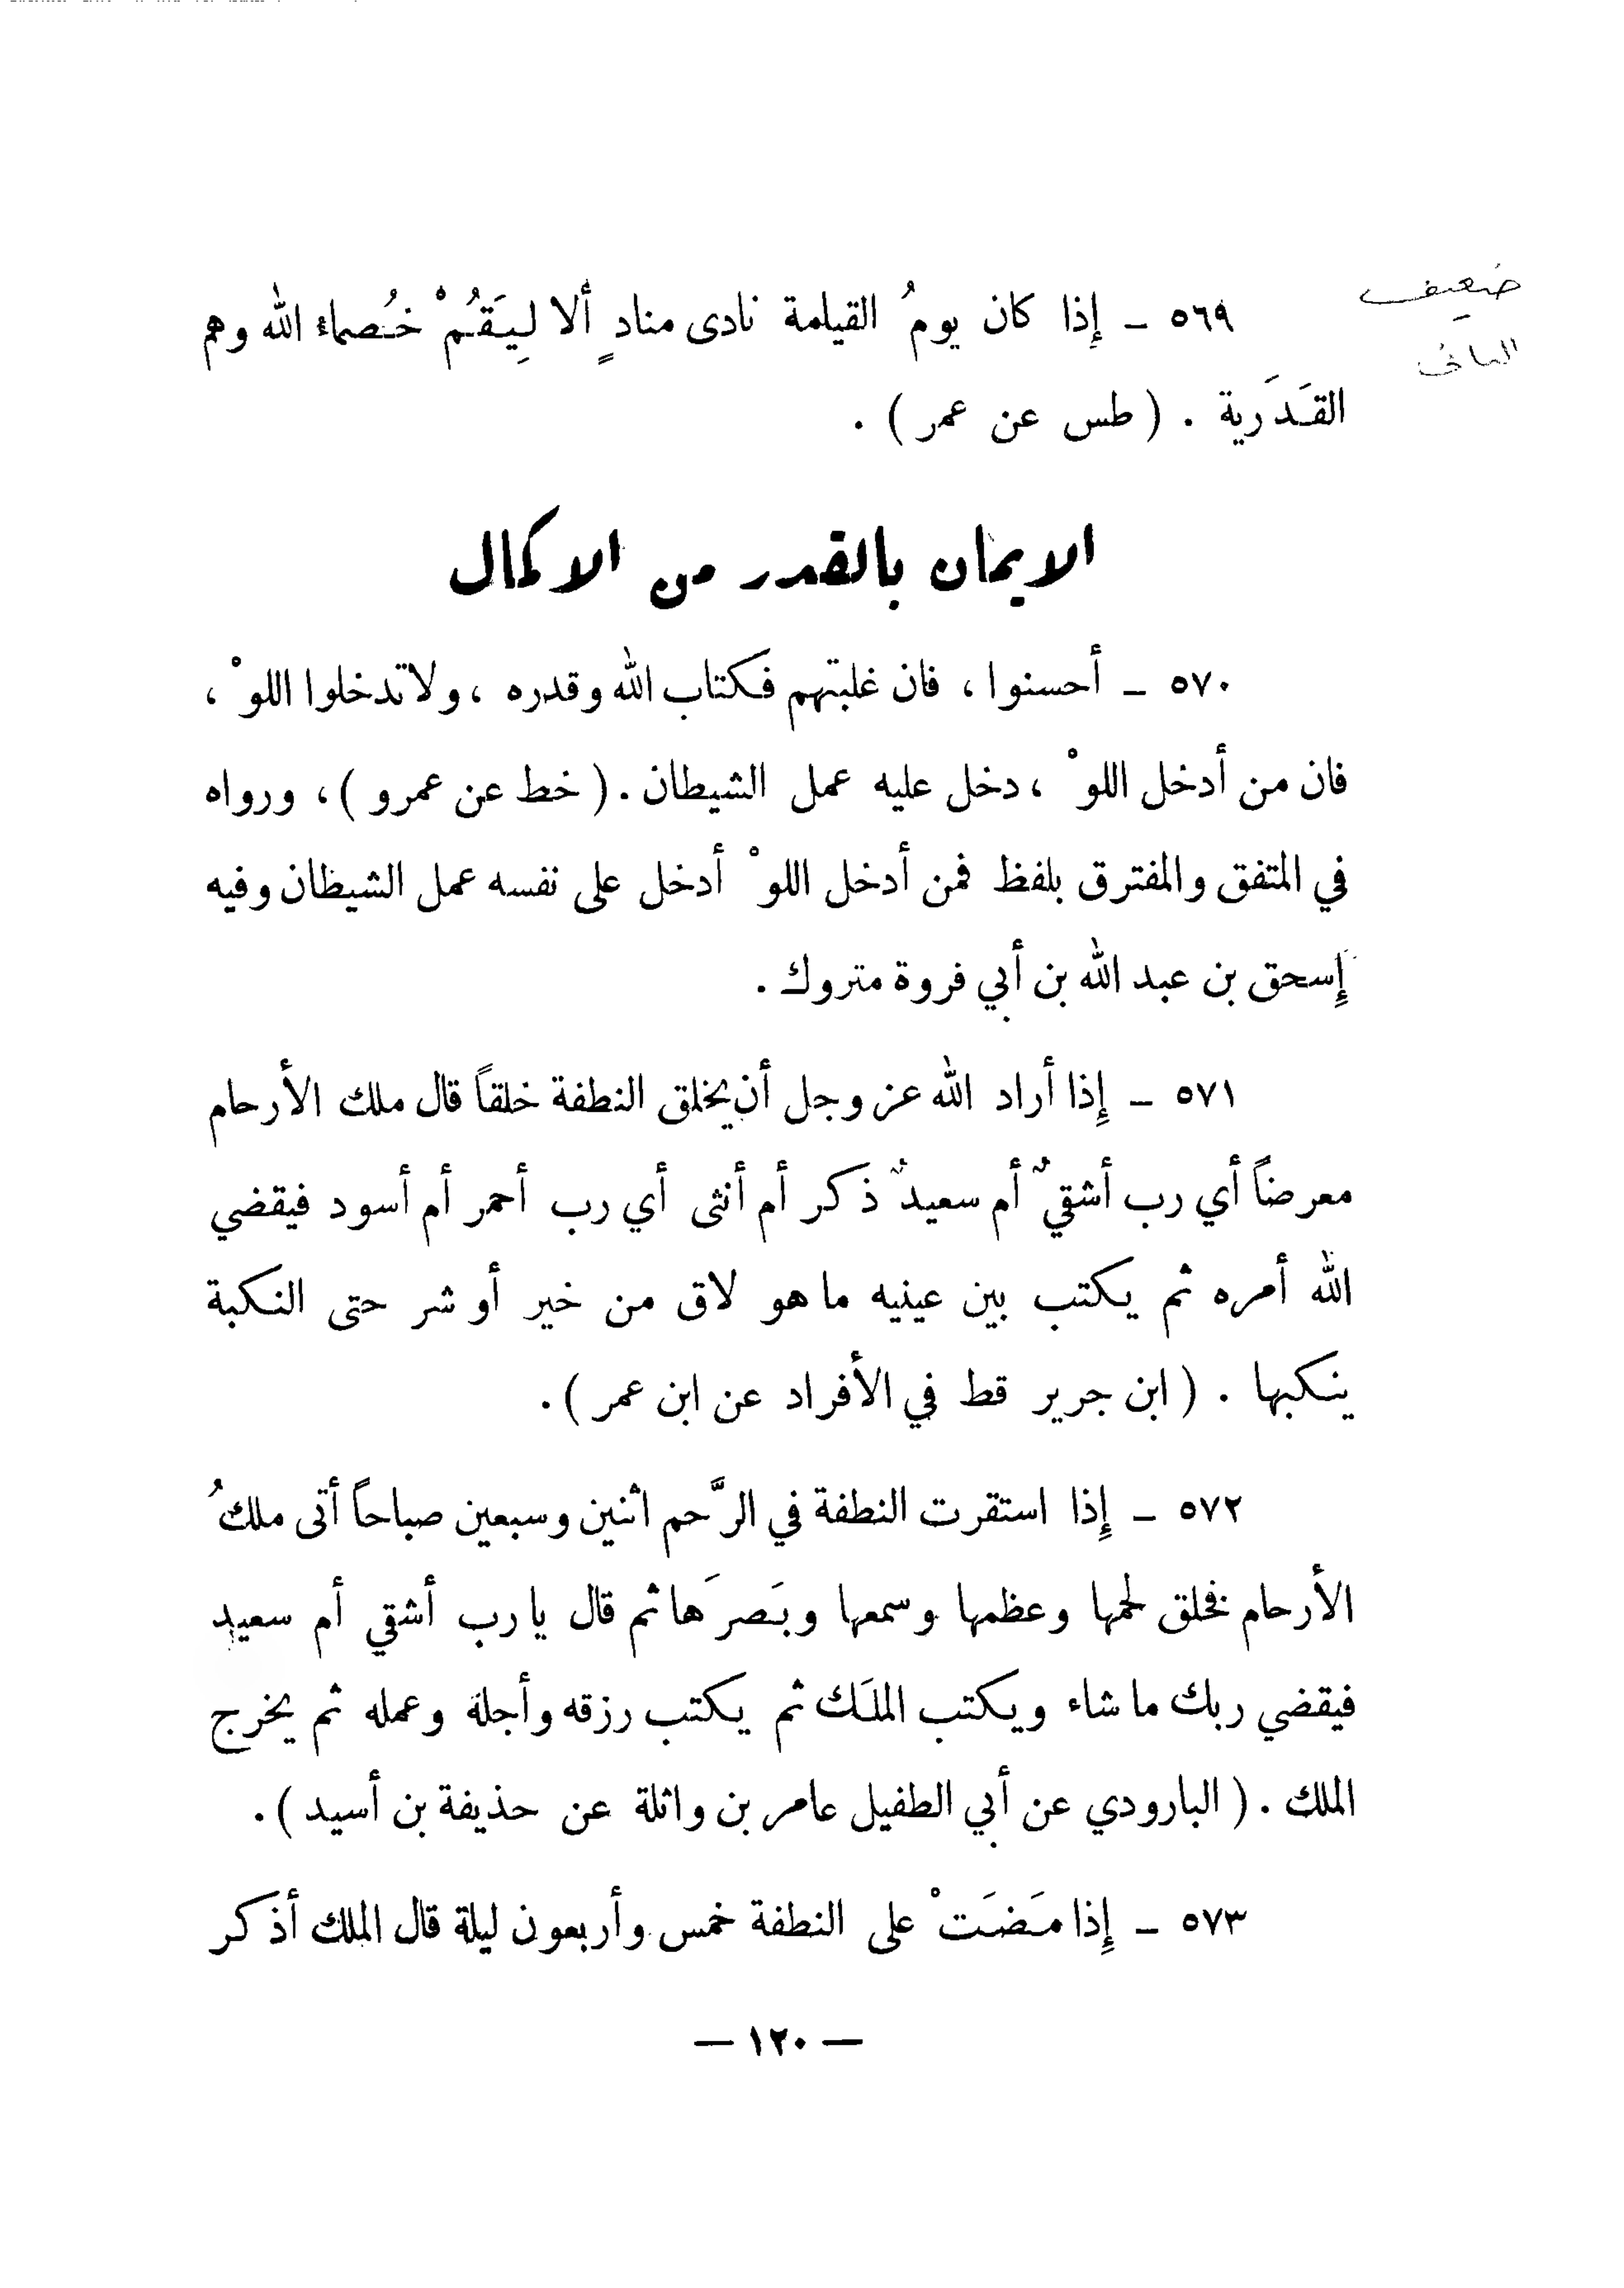 ضعيف
٥٦٩ – إِذا كان يومُ القيامة نادى منادٍ ألا لِيَقُمْ خُصماء الله وهم
البانى
القَدَرية . ( طس عن عمر ) .
الايمان بالقدر من الاكمال
٥٧٠ – أحسنوا ، فان غلبتهم فكتاب الله وقدره ، ولا تدخلوا اللوْ ،
فان من أدخل اللوْ ، دخل عليه عمل الشيطان . ( خط عن عمرو ) ، ورواه
في المتفق والمفترق بلفظ فمن أدخل اللوْ أدخل على نفسه عمل الشيطان وفيه
إِسحق بن عبد الله بن أبي فروة متروك .
٥٧١ – إِذا أراد الله عز وجل أن يخلق النطفة خلقاً قال ملك الأرحام
معرضاً أي رب أشقيٌ أم سعيدٌ ذكر أم أنثى أي رب أحمر أم أسود فيقضي
الله أمره ثم يكتب بين عينيه ما هو لاق من خير أو شر حتى النكبة
ينكبها . ( ابن جرير قط في الأفراد عن ابن عمر ) .
٥٧٢ – إِذا استقرت النطفة في الرَّحم اثنين وسبعين صباحاً أتى ملكُ
الأرحام فخلق لحمها وعظمها وسمعها وبَصرَها ثم قال يا رب أشقي أم سعيد
فيقضي ربك ما شاء ويكتب الملَك ثم يكتب رزقه وأجلة وعمله ثم يخرج
الملك . ( البارودي عن أبي الطفيل عامر بن واثلة عن حذيفة بن أسيد ) .
٥٧٣ – إِذا مَضَتْ على النطفة خمس وأربعون ليلة قال الملك أذكر
— ١٢٠ —